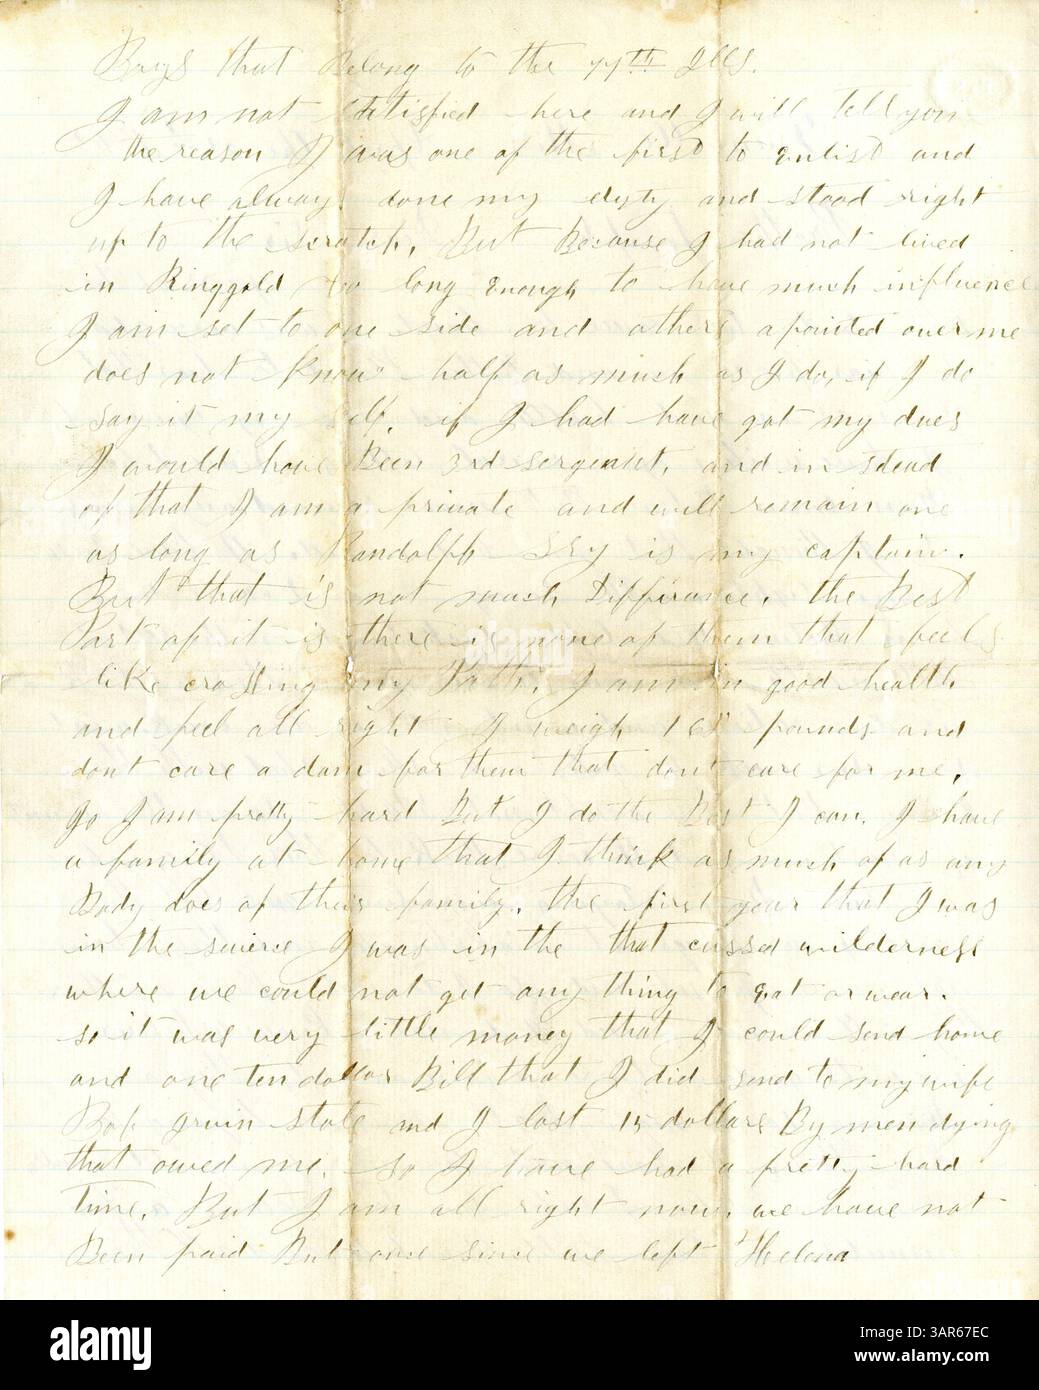 Boys that Belong to the 77th Ills.
I am not sattisfied here and I will tell you
the reason I was one of the first to enlist and
I have always done my duty and stood right
up to the scratch, But Because I had not lived
in Ringgold long enough to have much influence
I am set to one side and others apointed over me
does not know half as much as I do, if I do
say it my self, if I had have got my dues
I would have Been 3rd sergeant, and in stead
of that I am a private and will remain one
as long as Randolph Sry is my captain.
But that is not much Differance, the Best
Part of it is there is none of them that feels
like crossing my Path, I am in good health
and feel all right I weigh pounds and
dont care a dam for them that dont care for me,
Jo I am pretty hard But I do the Best I can, I have
a family at home that I think as much of as any
Body does of their family, the first year that I was
in the I was in the that cussed wilderness
where we could not get any thing to eat or wear.
so it was very little money that I could send home
and one ten dollar Bill that I did send to my wife
state and I lost 15 dollars By men dying
that owed me, so I have had a pretty hard
time, But I am all right now, we have not
Been paid But once since we left Helena
alamy
Image ID: 3AR67EC
www.alamy.com